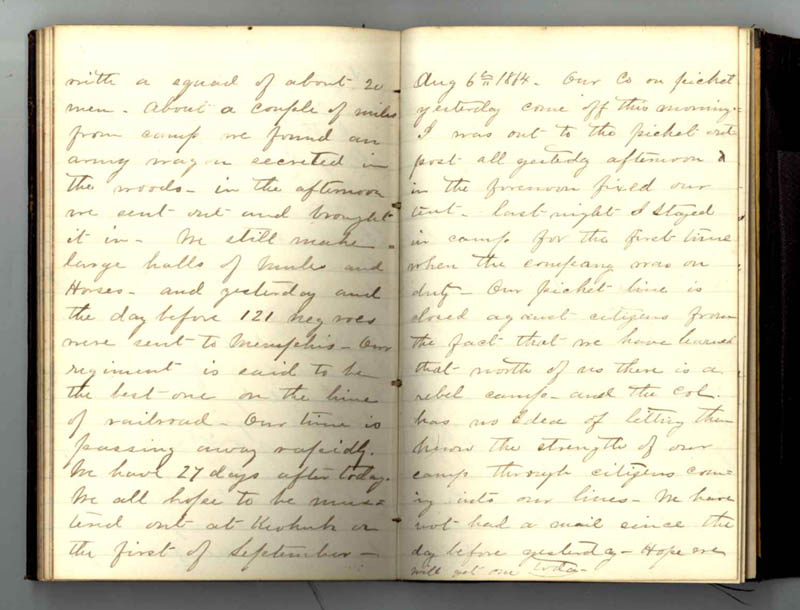 with a squad of about 20
men - About a couple of miles
from camp we found an
army wagon secreted in
the woods - in the afternoon
we sent out and brought
it in - We still make
large halls of Mules and
Horses - and yesterday and
the day before 121 negroes
were sent to Memphis - Our
regiment is said to be
the best one on the line
of railroad - Our time is
passing away rapidly.
We have 27 days after today.
We all hope to be mus=
tered out at Keokuk on
the first of September -
Aug 6th 1864 - Our Co on picket
yesterday come off this morning -
I was out to the picket out
post all yestedy afternoon &
in the forenoon fixed our
tent - last night I stayed
in camp for the first time
when the company was on
duty - Our picket line is
closed against citizens from
the fact that we have learned
that north of us there is a
rebel camp - and the Col.
has no idea of letting them
know the strength of our
camp through citizens com=
ing into our lines - We have
not had a mail since the
day before yesterday - Hope we
will get one today -